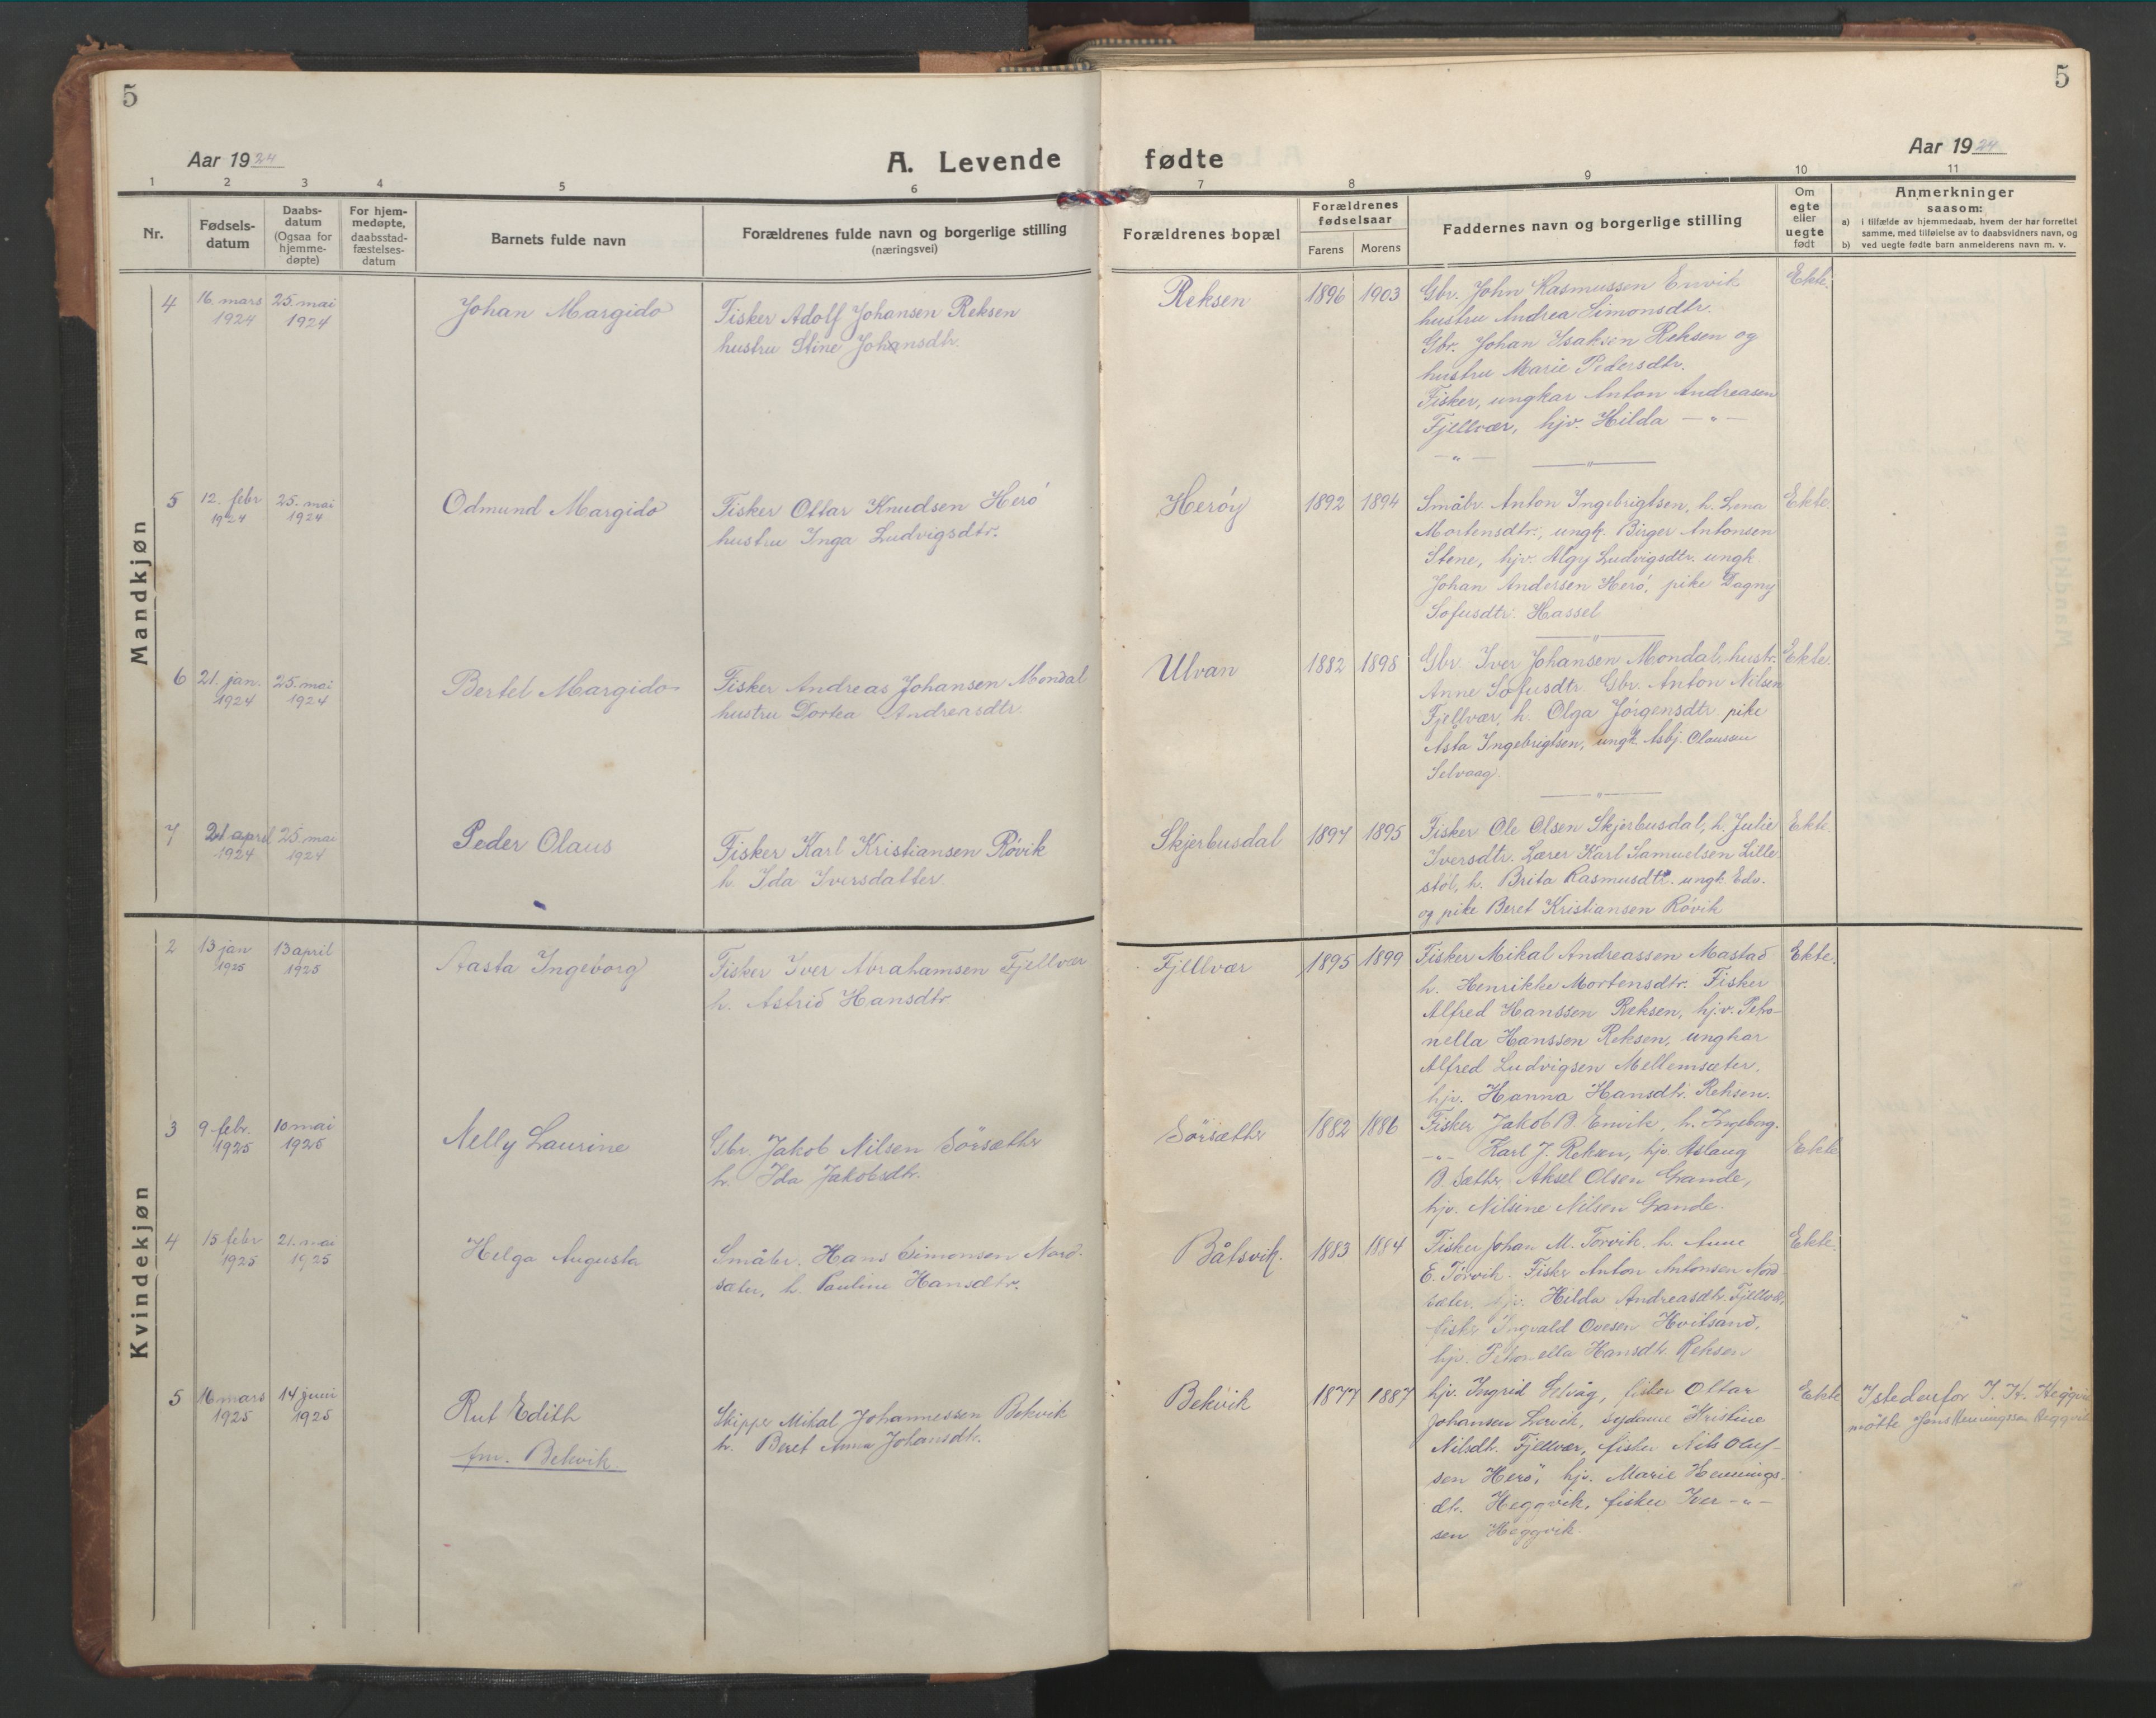 5
5
Aar 1924
A. Levende
fødte
Aar 1924
1 2 3 4 5 6
7 8 9 10 11
Nr.
Fødsels-
datum
Daabs-
datum
(Ogsaa for
hjemme-
døpte)
For hjem-
medøpte,
daabsstad-
fæstelses-
datum
Barnets fulde navn
Forældrenes fulde navn og borgerlige stilling
(næringsvei)
Forældrenes bopæl
Forældrenes
fødselsaar
Farens
Morens
Faddernes navn og borgerlige stilling
Om
egte
eller
uegte
født
Anmerkninger
saasom:
a) i tilfælde av hjemmedaab, hvem der har forrettet
samme, med tilføielse av to daabsvidners navn, og
b) ved uegte fødte barn anmelderens navn m. v.
Mandkjøn
4
16. mars
1924
25. mai
1924
Johan Margido
Fisker Adolf Johansen Reksen
hustru Stine Johansdtr.
Reksen
1896
1903
Gbr. John Rasmussen Envik
hustru Andrea Simonsdtr.
Gbr. Johan Isaksen Reksen og
hustru Marie Pedersdtr.
Fisker, ungkar Anton Andreasen
Fjellvær, hjv. Hilda — " —
— " —
Ekte.
5
12. febr
1924
25. mai
1924
Odmund Margido
Fisker Ottar Knudsen Herö
hustru Inga Ludvigsdtr.
Heröy
1892
1894
Småbr. Anton Ingebrigtsen, h. Lena
Mortensdtr., ungk. Birger Antonsen
Stene, hjv. Algy Ludvigsdtr. ungk
Johan Andersen Herö, pike Dagny
Sofusdtr. Hassel
Ekte.
6
21. jan.
1924
25. mai
1924
Bertel Margido
Fisker Andreas Johansen Mondal
hustru Dortea Andreasdtr.
Ulvan
1882
1898
Gbr. Iver Johansen Mondal, hustr.
Anne Sofusdtr. Gbr. Anton Nilsen
Fjellvær, h. Olga Jörgensdtr pike
Asta Ingebrigtsen, ungk. Asbj. Olaussen
Selvaag.
Ekte.
7
21 april
1924
25 mai
1924
Peder Olaus
Fisker Karl Kristiansen Røvik
h. Ida Iversdatter
Skjerbusdal
1897
1895
Fisker Ole Olsen Skjerbusdal, h. Julie
Iversdtr. Lærer Karl Samuelsen Lille-
støl, h. Brita Rasmusdtr. ungk. Edv.
og pike Beret Kristiansen Røvik
Ekte.
Kvindekjøn
2
13 jan
1925
13 april
1925
Aasta Ingeborg
Fisker Iver Abrahamsen Fjellvær
h. Astrid Hansdtr
Fjellvær
1895
1899
Fisker Mikal Andreassen Mastad
h. Henrikke Mortensdtr. Fisker
Alfred Hanssen Reksen, hjv. Petro-
nella Hanssen Reksen, ungkar
Alfred Ludvigsen Mellemsæter,
hjv. Hanna Hansdtr. Reksen.
Ekte.
3
9 febr.
1925
10 mai
1925
Nelly Laurine
Gbr. Jakob Nilsen Sörsæther
h. Ida Jakobsdtr.
Sörsæther
1882
1886
Fisker Jakob B. Envik, h. Ingeborg.
—"— Karl J. Reksen, hjv. Aslaug
B. Sæther Aksel Olsen Grande,
hjv. Nilsine Nilsen Grande.
Ekte
4
15 febr
1925
21. mai
1925
Helga Augusta
Småbr. Hans Simonsen Nord-
sæter, h. Pauline Hansdtr.
Båtsvik.
1883
1884
Fisker Johan M. Torvik, h. Anne
E. Torvik. Fisker Anton Antonsen Nord-
sæter, hjv. Hilda Andreasdtr. Fjellvær,
fisker Ingvald Ovesen Hvitsand,
hjv. Petronella Hansdtr Reksen
Ekte.
5
16 mars
1925
14 juni
1925
Rut Edith
fm. Bekvik.
Skipper Mikal Johannessen Bekvik
h. Beret Anna Johansdtr.
Bekvik
1877
1887
hjv. Ingrid Selvåg, fisker Ottar
Johansen Lervik, sydame Kristine
Nilsdtr. Fjellvær, fisker Nils Oluf-
sen Herö, hjv. Marie Hennings-
dtr. Heggvik, fisker Iver —"—
sen Heggvik.
Ekte
Istedenfor I. H. Heggvik
mötte Jens Henningssen Heggvik